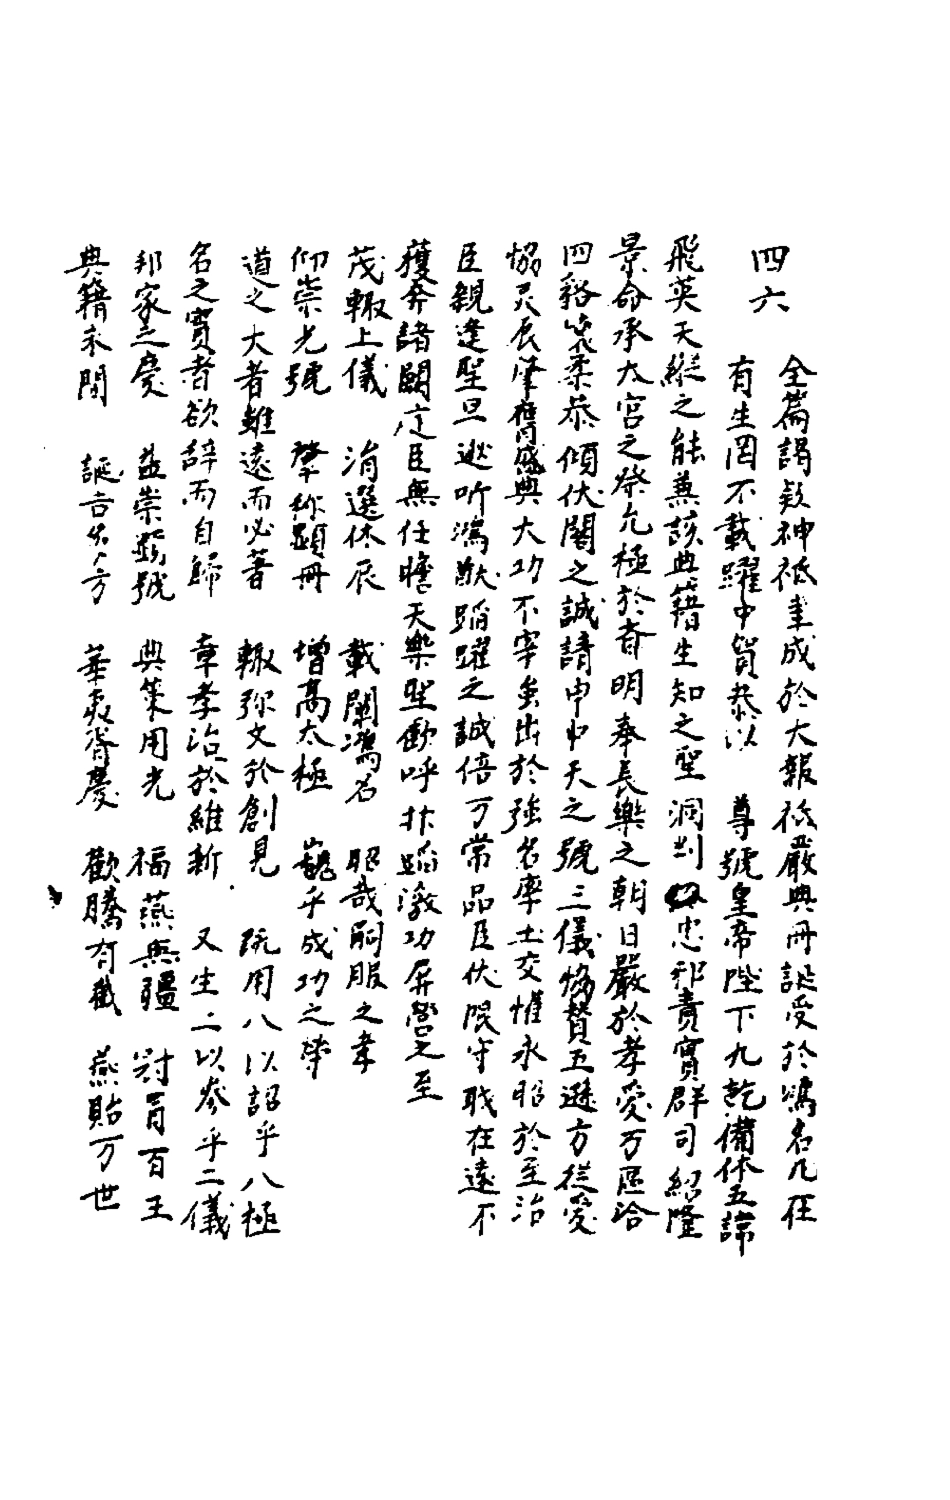 四六
全篇謁欵神祗聿成於大報祗嚴典冊誕受於鴻名凡在
有生罔不載躍中賀恭以 尊號皇帝陛下九乾備休五諱
飛英天縱之能兼該典籍生知之聖洞判忠邪責實群司紹隆
景命承太宮之祭允極於齊明奉長樂之朝日嚴於孝愛万區洽
四谿來柔恭傾伏閤之誠請申中天之號三儀恊贊五遜方從爰
恊灵辰肇膺盛典大功不宰虽出於強名率土交懽永昭於至治
臣親逢聖旦逖听鴻猷蹈躍之誠倍万常品臣伏限守職在遠不
獲奔諸闕庭臣無任瞻天樂聖歡呼抃蹈激功屏營之至
茂轍上儀 涓選休辰 載闡鴻名 昭哉嗣服之孝
仰崇光號 肇称顯冊 增高太極 巍乎成功之崇
道之大者雖遠而必著 轍弥文於創見 既用八以詔乎八極
名之實者欲辞而自歸 章孝治於維新 又生二以參乎二儀
邦家之慶 益崇顯號 典策用光 福燕無疆 冠百王
典籍未聞 誕告多方 華夷胥慶 歡騰有截 燕貽万世